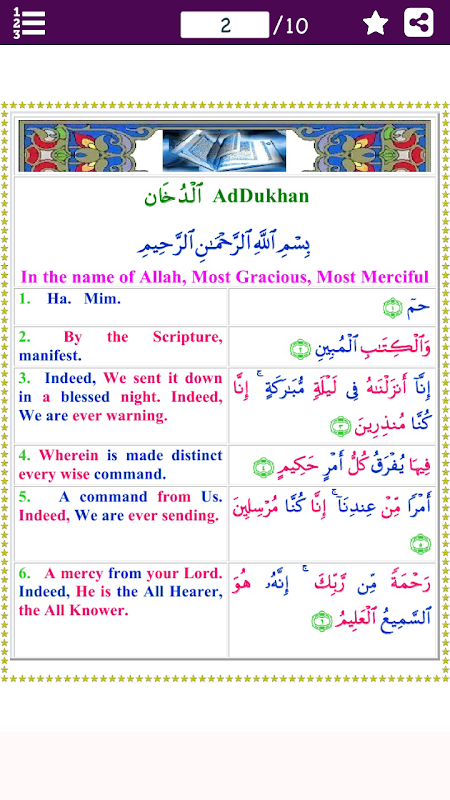 1
2
3
2 /10
ٱلْدُخَان AdDukhan
بِسْمِ اللَّهِ الرَّحْمَٰنِ الرَّحِيمِ
In the name of Allah, Most Gracious, Most Merciful
1. Ha. Mim.
حمٓ ١
2. By the Scripture,
manifest.
وَٱلْكِتَٰبِ ٱلْمُبِينِ ٢
3. Indeed, We sent it down
in a blessed night. Indeed,
We are ever warning.
إِنَّآ أَنزَلْنَٰهُ فِى لَيْلَةٍ مُّبَٰرَكَةٍ ۚ إِنَّا
كُنَّا مُنذِرِينَ ٣
4. Wherein is made distinct
every wise command.
فِيهَا يُفْرَقُ كُلُّ أَمْرٍ حَكِيمٍ ٤
5. A command from Us.
Indeed, We are ever sending.
أَمْرًا مِّنْ عِندِنَآ ۚ إِنَّا كُنَّا مُرْسِلِينَ
٥
6. A mercy from your Lord.
Indeed, He is the All Hearer,
the All Knower.
رَحْمَةً مِّن رَّبِّكَ ۚ إِنَّهُۥ هُوَ
ٱلسَّمِيعُ ٱلْعَلِيمُ ٦